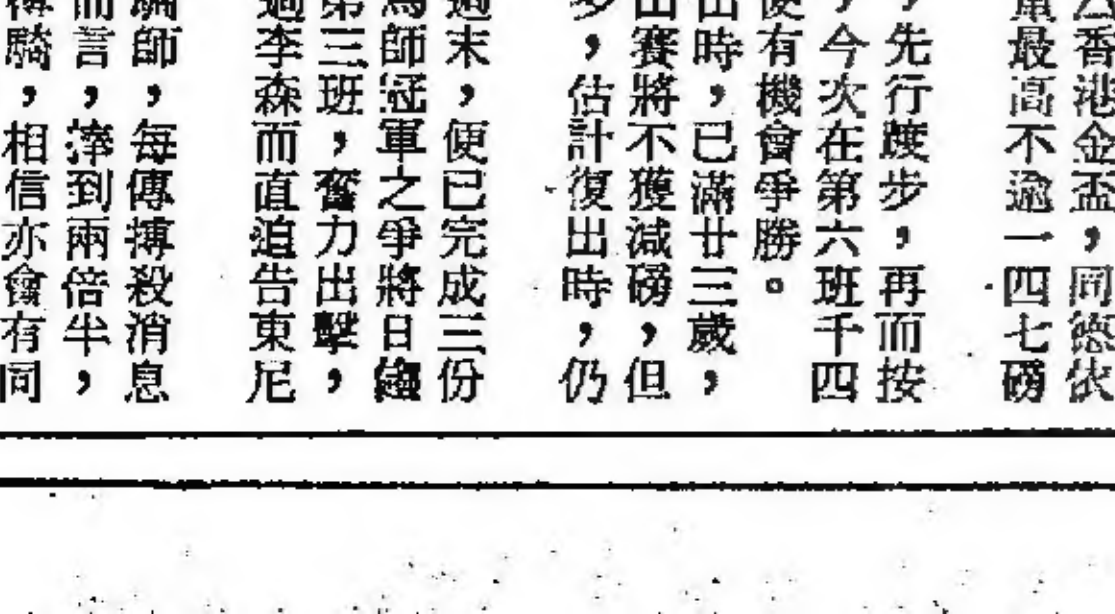 香港金盃,同德依
量最高不逾一四七磅
,先行踱步,再而按
,今次在第六班千四
便有機會爭勝。
出時,已滿廿三歲,
出賽將不獲減磅,但
多,估計復出時,仍
週末,便已完成三份
馬師冠軍之爭將日趨
第三班,奮力出擊,
過李森而直追告東尼
騎師,每傳搏殺消息
而言,捧到兩倍半,
騎,相信亦會有同